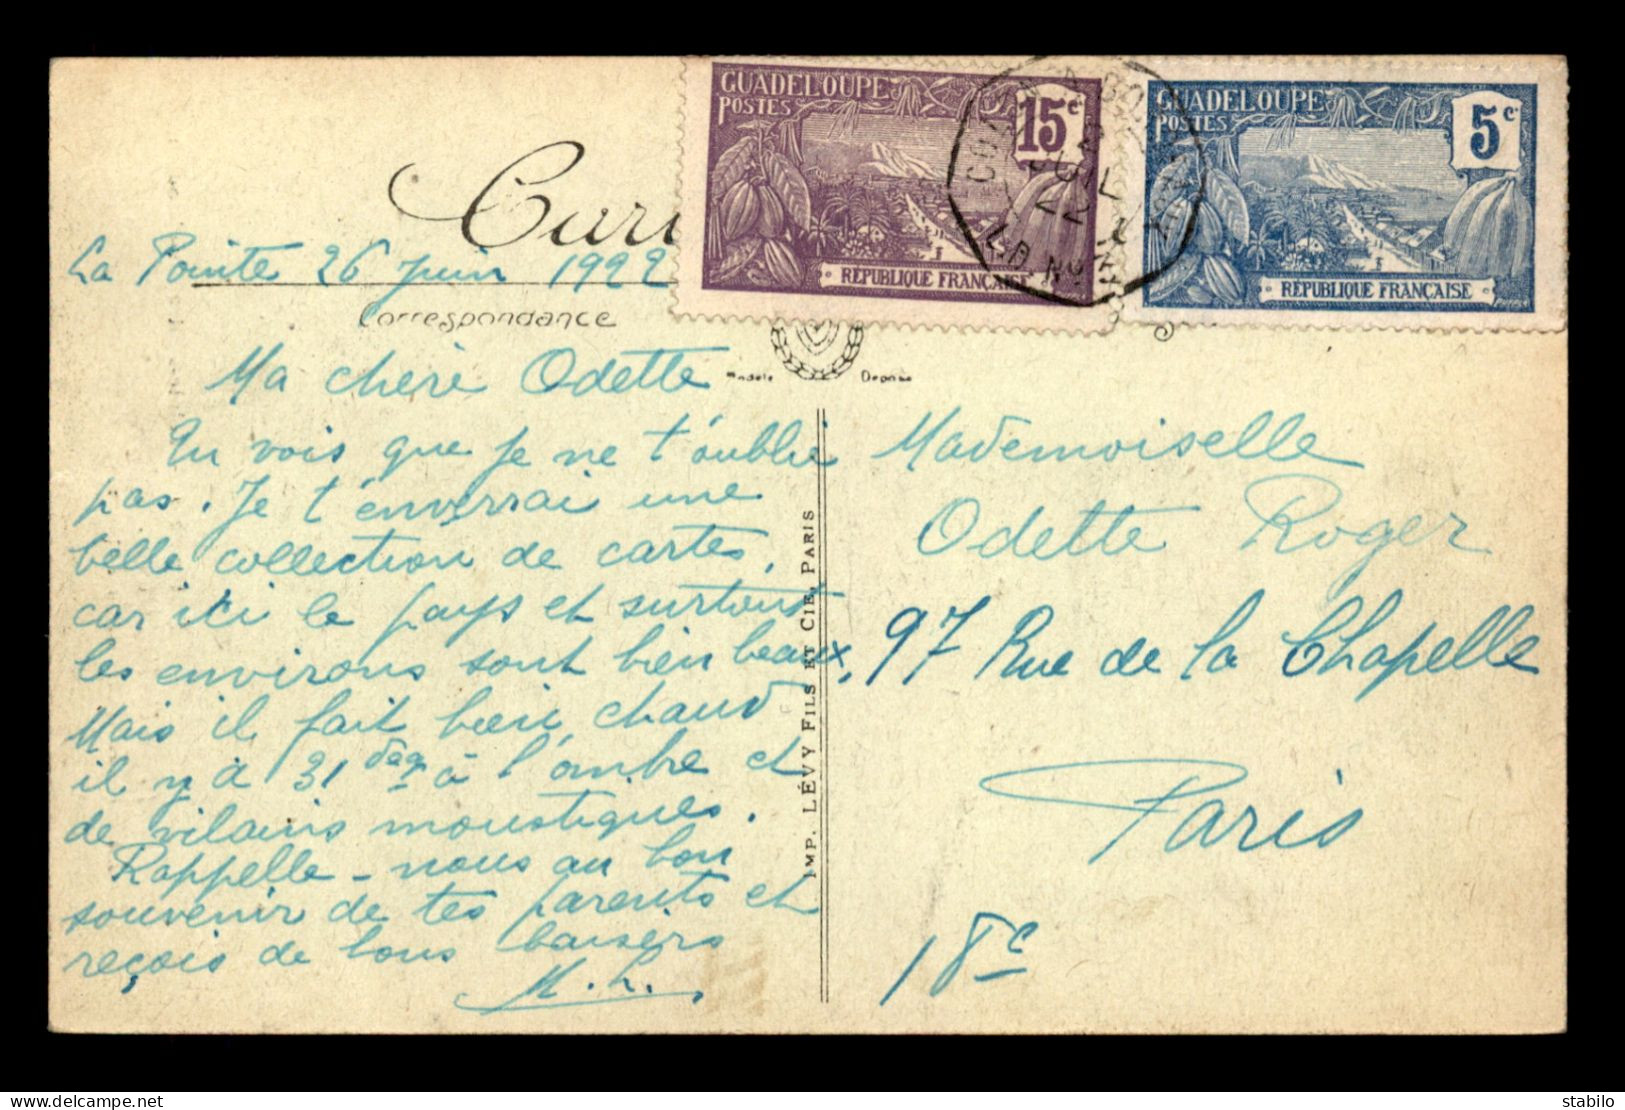 GUADELOUPE
POSTES
15c
RÉPUBLIQUE FRANÇAISE
GUADELOUPE
POSTES
5c
RÉPUBLIQUE FRANÇAISE
La Pointe 26 juin 1922
Correspondance
Modèle Déposé
Ma chère Odette
Tu vois que je ne t'oublie
pas. Je t'enverrai une
belle collection de cartes,
car ici le pays et surtout
les environs sont bien beaux,
Mais il fait bien chaud
il y a 31 deg à l'ombre et
de vilains moustiques.
Rappelle-nous au bon
souvenir de tes parents et
reçois de bons baisers
M. L.
IMP. LÉVY FILS ET CIE, PARIS
Mademoiselle
Odette Roger
97 Rue de la Chapelle
Paris
18c
stabilo
www.delcampe.net